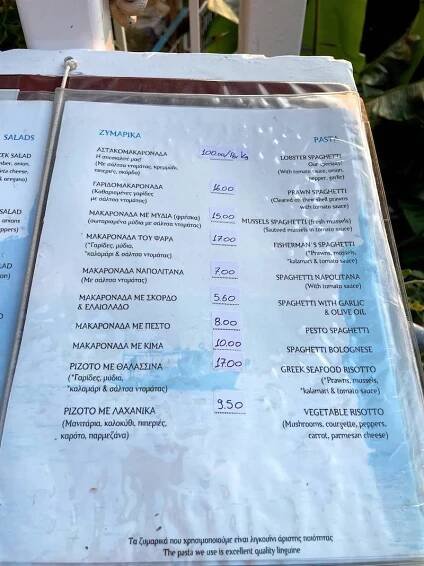 SALADS
ΖΥΜΑΡΙΚΑ PASTA
ΑΣΤΑΚΟΜΑΚΑΡΟΝΑΔΑ 100.00/per Kg LOBSTER SPAGHETTI
Η σπεσιαλιτέ μας! Our speciality!
(Με σάλτσα ντομάτας, κρεμμύδι, (With tomato sauce, onion,
πιπεριές, σκόρδο) pepper, garlic)
ΓΑΡΙΔΟΜΑΚΑΡΟΝΑΔΑ 16.00 PRAWN SPAGHETTI
(Καθαρισμένες γαρίδες (Cleaned on their shell prawns
με σάλτσα ντομάτας) with tomato sauce)
ΜΑΚΑΡΟΝΑΔΑ ΜΕ ΜΥΔΙΑ (φρέσκα) 15.00 MUSSELS SPAGHETTI (fresh mussels)
(σωταρισμένα μύδια με σάλτσα ντομάτας) (Sauteed mussels in tomato sauce)
ΜΑΚΑΡΟΝΑΔΑ ΤΟΥ ΨΑΡΑ 17.00 FISHERMAN'S SPAGHETTI
(*Γαρίδες, μύδια, (*Prawns, mussels,
*καλαμάρι & σάλτσα ντομάτας) *kalamari & tomato sauce)
ΜΑΚΑΡΟΝΑΔΑ ΝΑΠΟΛΙΤΑΝΑ 7.00 SPAGHETTI NAPOLITANA
(Με σάλτσα ντομάτας) (With tomato sauce)
ΜΑΚΑΡΟΝΑΔΑ ΜΕ ΣΚΟΡΔΟ 5.60 SPAGHETTI WITH GARLIC
& ΕΛΑΙΟΛΑΔΟ & OLIVE OIL
ΜΑΚΑΡΟΝΑΔΑ ΜΕ ΠΕΣΤΟ 8.00 PESTO SPAGHETTI
ΜΑΚΑΡΟΝΑΔΑ ΜΕ ΚΙΜΑ 10.00 SPAGHETTI BOLOGNESE
ΡΙΖΟΤΟ ΜΕ ΘΑΛΑΣΣΙΝΑ 17.00 GREEK SEAFOOD RISOTTO
(*Γαρίδες, μύδια, (*Prawns, mussels,
*καλαμάρι & σάλτσα ντομάτας) *kalamari & tomato sauce)
ΡΙΖΟΤΟ ΜΕ ΛΑΧΑΝΙΚΑ 9.50 VEGETABLE RISOTTO
(Μανιτάρια, κολοκύθι, πιπεριές, (Mushrooms, courgette, peppers,
καρότο, παρμεζάνα) carrot, parmesan cheese)
Τα ζυμαρικά που χρησιμοποιούμε είναι λιγκουίνι άριστης ποιότητας
The pasta we use is excellent quality linguine